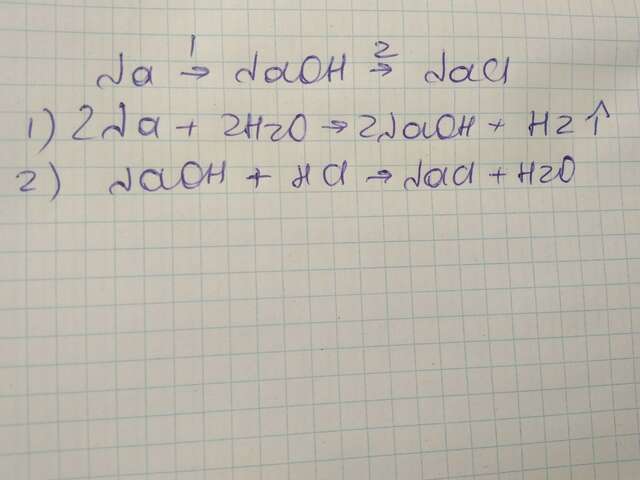 Na 1→ NaOH 2→ NaCl
1) 2Na + 2H2O → 2NaOH + H2↑
2) NaOH + HCl → NaCl + H2O